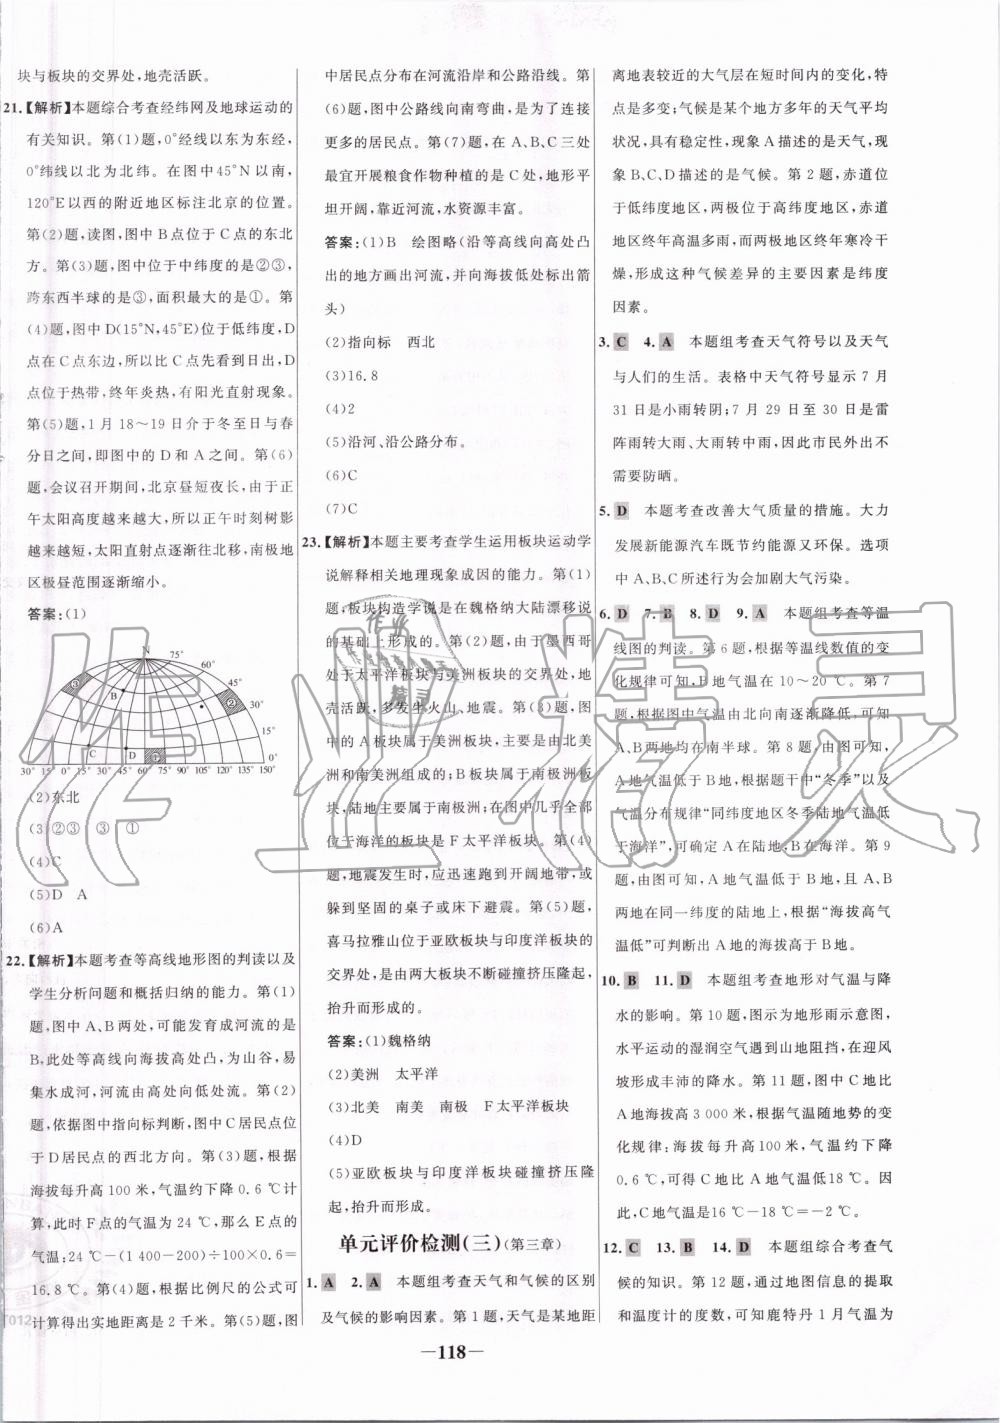 块与板块的交界处,地壳活跃。
21.【解析】本题综合考查经纬网及地球运动的
有关知识。第(1)题,0°经线以东为东经,
0°纬线以北为北纬。在图中45°N以南,
120°E以西的附近地区标注北京的位置。
第(2)题,读图,图中B点位于C点的东北
方。第(3)题,图中位于中纬度的是②③,
跨东西半球的是③,面积最大的是①。第
(4)题,图中D(15°N,45°E)位于低纬度,D
点在C点东边,所以比C点先看到日出,D
点位于热带,终年炎热,有阳光直射现象。
第(5)题,1月18～19日介于冬至日与春
分日之间,即图中的D和A之间。第(6)
题,会议召开期间,北京昼短夜长,由于正
午太阳高度越来越大,所以正午时刻树影
越来越短,太阳直射点往北移,南极地
区极昼范围逐渐缩小。
答案:(1)
N
75°
60°
45°
30°
15°
0°
③
B
②
C
D
①
30° 15° 0° 15° 30° 45° 60° 75° 90° 105° 120° 135° 150°
(2)东北
(3)②③ ③ ①
(4)C
(5)D A
(6)A
22.【解析】本题考查等高线地形图的判读以及
学生分析问题和概括归纳的能力。第(1)
题,图中A、B两处,可能发育成河流的是
B,此处等高线向海拔高处凸,为山谷,易
集水成河,河流由高处向低处流。第(2)
题,依据图中指向标判断,图中C居民点位
于D居民点的西北方向。第(3)题,根据
海拔每升高100米,气温约下降0.6℃计
算,此时F点的气温为24℃,那么E点的
气温:24℃-(1 400-200)÷100×0.6=
16.8℃。第(4)题,根据比例尺的公式可
计算得出实地距离是2千米。第(5)题,图
中居民点分布在河流沿岸和公路沿线。第
(6)题,图中公路线向南弯曲,是为了连接
更多的居民点。第(7)题,在A、B、C三处
最宜开展粮食作物种植的是C处,地形平
坦开阔,靠近河流,水资源丰富。
答案:(1)B 绘图略(沿等高线向高处凸
出的地方画出河流,并向海拔低处标出箭
头)
(2)指向标 西北
(3)16.8
(4)2
(5)沿河、沿公路分布。
(6)C
(7)C
23.【解析】本题主要考查学生运用板块运动学
说解释相关地理现象成因的能力。第(1)
题,板块构造学说是在魏格纳大陆漂移说
的基础上形成的。第(2)题,由于墨西哥
处于太平洋板块与美洲板块的交界处,地
壳活跃,多发生火山、地震。第(3)题,图
中的A板块属于美洲板块,主要是由北美
洲和南美洲组成的;B板块属于南极洲板
块,陆地主要属于南极洲;在图中几乎全部
位于海洋的板块是F太平洋板块。第(4)
题,地震发生时,应迅速跑到开阔地带,或
躲到坚固的桌子或床下避震。第(5)题,
喜马拉雅山位于亚欧板块与印度洋板块的
交界处,是由两大板块不断碰撞挤压隆起,
抬升而形成的。
答案:(1)魏格纳
(2)美洲 太平洋
(3)北美 南美 南极 F太平洋板块
(4)D
(5)亚欧板块与印度洋板块碰撞挤压隆
起,抬升而形成的。
单元评价检测(三)(第三章)
1. A 2. A 本题组考查天气和气候的区别
及气候的影响因素。第1题,天气是某地距
离地表较近的大气层在短时间内的变化,特
点是多变;气候是某个地方多年的天气平均
状况,具有稳定性,现象A描述的是天气,现
象B、C、D描述的是气候。第2题,赤道地
区位于低纬度地区,两极位于高纬度地区,赤道
地区终年高温多雨,而两极地区终年寒冷干
燥,形成这种气候差异的主要因素是纬度
因素。
3. C 4. A 本题组考查天气符号以及天气
与人们的生活。表格中天气符号显示7月
31日是小雨转阴;7月29日至30日是雷
阵雨转大雨、大雨转中雨,因此市民外出不
需要防晒。
5. D 本题考查改善大气质量的措施。大力
发展新能源汽车既节约能源又环保。选项
中A、B、C行为会加剧大气污染。
6. D 7. B 8. D 9. A 本题组考查等温
线图的判读。第6题,根据等温线数值的变
化规律可知,B地气温在10～20℃。第7
题,根据图中气温由北向南逐渐降低,可知
A、B两地均在南半球。第8题,由图可知,
A地气温低于B地,根据题干中“冬季”以及
气温分布规律“同纬度地区冬季陆地气温低
于海洋”,可判断出A在陆地,B在海洋。第9
题,由图可知,A地气温低于B地,且A、B
两地在同一纬度的陆地上,根据“海拔高气
温低”可判断出A地的海拔高于B地。
10. B 11. D 本题组考查地形对气温与降
水的影响。第10题,图示为地形雨示意图,
水平运动的湿润空气遇到山地阻挡,在迎风
坡形成丰沛的降水。第11题,图中C地比
A地海拔高3 000米,根据气温随地势的变
化规律:海拔每升高100米,气温约下降
0.6℃,可得C地比A地气温低18℃。因
此,C地气温是16℃-18℃=-2℃。
12. C 13. B 14. D 本题组综合考查气
候的知识。第12题,通过地图信息的提取
和温度计的度数,可知鹿特丹1月气温为
作业精灵
作业
精灵
—118—